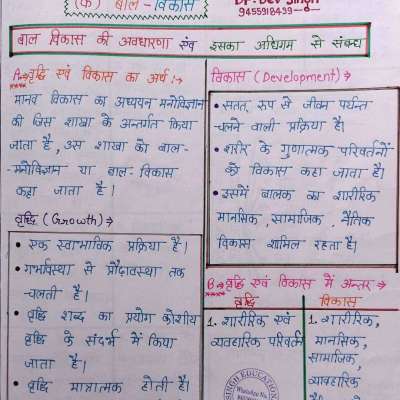 (क) बाल - विकास
BY:- Dev Singh
9455918439
बाल विकास की अवधारणा एवं इसका अधिगम से संबन्ध
A→ वृद्धि एवं विकास का अर्थ :→
मानव विकास का अध्ययन मनोविज्ञान
की जिस शाखा के अन्तर्गत किया
जाता है, उस शाखा को बाल-
-मनोविज्ञान या बाल- विकास
कहा जाता है।
वृद्धि (Growth)→
• एक स्वाभाविक प्रक्रिया है।
• गर्भावस्था से प्रौढ़ावस्था तक
-चलती है।
• वृद्धि शब्द का प्रयोग कोशीय
वृद्धि के संदर्भ में किया
जाता है।
• वृद्धि मात्रात्मक होती है।
विकास (Development)→
• सतत् रूप से जीवन पर्यन्त
-चलने वाली प्रक्रिया है।
• शरीर के गुणात्मक परिवर्तनों
को विकास कहा जाता है।
• इसमें बालक का शारीरिक
मानसिक, सामाजिक, नैतिक
विकास शामिल रहता है।
B→ वृद्धि एवं विकास में अन्तर→
वृद्धि
विकास
1. शारीरिक एवं
व्यवहारिक परिवर्तन
1. शारीरिक,
मानसिक,
सामाजिक,
व्यवहारिक
SINGH EDUCATION